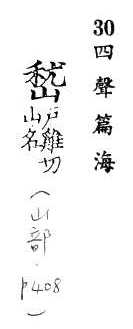 30 四聲篇海
嵇
戶雞切
山名
（山部．p408）